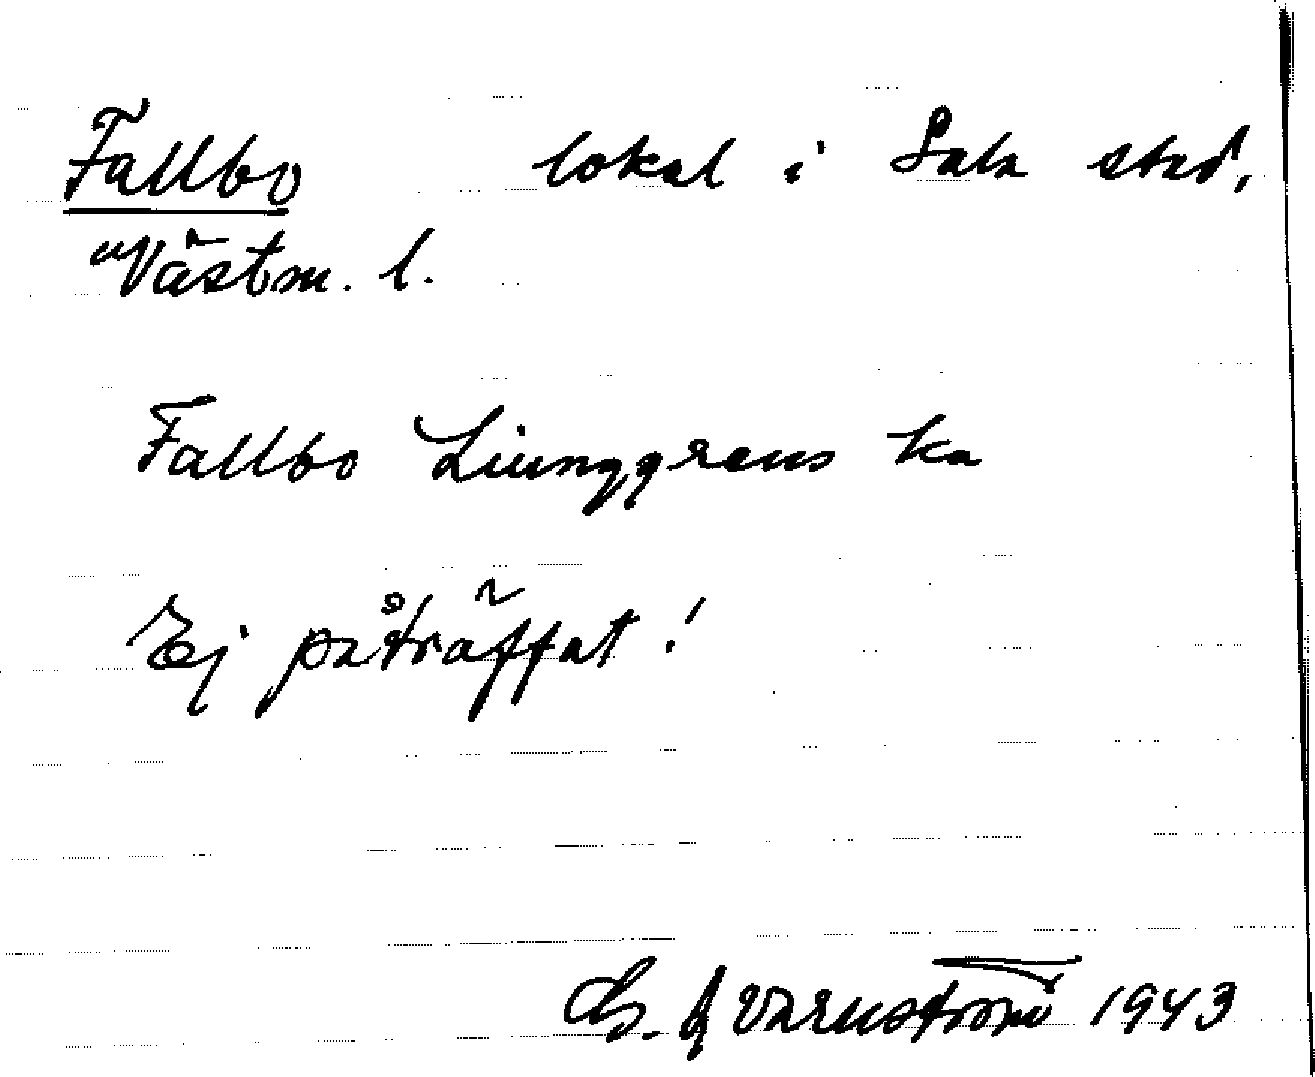 Fallbo lokal i Sala stad,
Västm. l.
Fallbo Liunggrens ka
Ej påträffat!
G. Qvarnström 1943